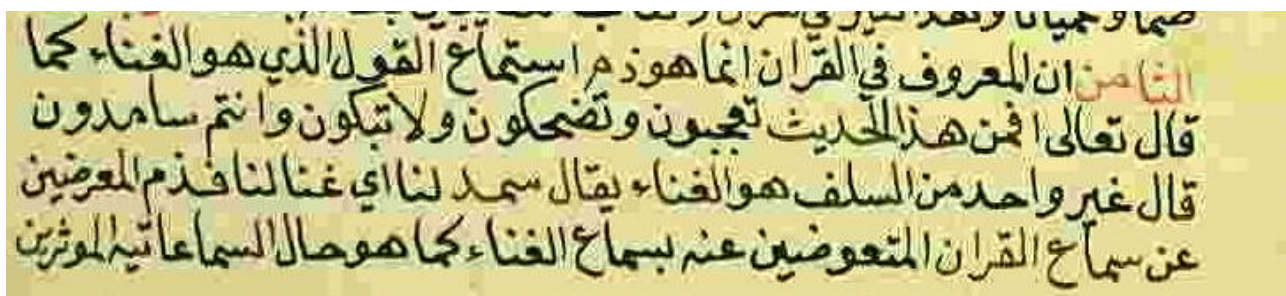 الثامن ان المعروف في القرآن انما هو ذم استماع القول الذي هو الغناء كما
قال تعالى افمن هذا الحديث تعجبون وتضحكون ولا تبكون وانتم سامدون
قال غير واحد من السلف هو الغناء يقال سمد لنا اي غنا لنا فذم المعرضين
عن سماع القران المتعوضين عنه بسماع الغناء كما هو حال السماعاتيه الموثرين